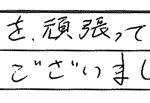 を、頑張って
ございまし